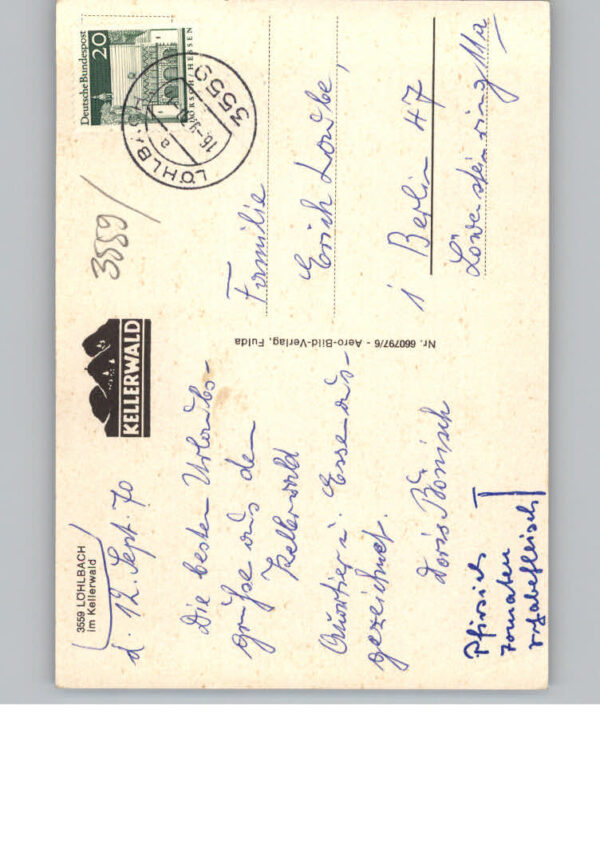 3559 LÖHLBACH
im Kellerwald
d. 12. Sept. 70
KELLERWALD
Die besten Urlaubs-
grüße aus dem
Kellerwald
Quartier u. Essen aus-
gezeichnet.
Doris Bönisch
Pfirsich
Tomaten
Nr. 660797/6 - Aero-Bild-Verlag, Fulda
3559/
Deutsche Bundespost
20
LORSCH / HESSEN
3559 LÖHLBACH
a
Familie
Erich
1 Berlin 47
Löwensteinring